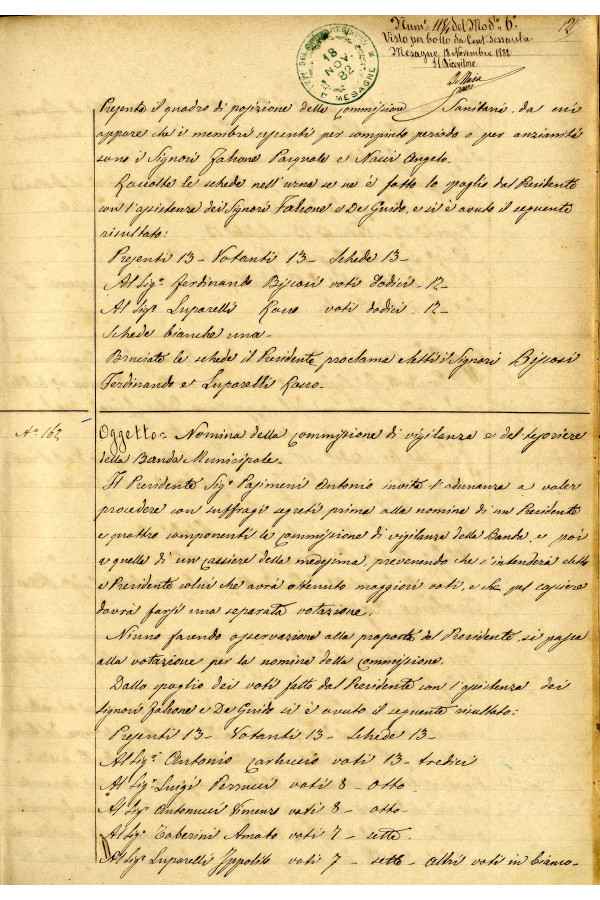 Num.° 114 del Mod.° 6°
Visto per bollo da Cent. Sessanta
Mesagne 18 Novembre 1882
Il Ricevitore
UFF. DEL REGISTRO
18
NOV.
82
MESAGNE
Presenta il quadro di posizione della Commissione Sanitaria, da cui
appare che i membri uscenti per compiuto periodo o per anzianità
sono i Signori Falcone Pasquale e Nacci Angelo.
Raccolte le schede nell'urna se ne è fatto lo spoglio dal Presidente
con l'assistenza dei Signori Falcone e De Guido, e si è avuto il seguente
risultato:
Presenti 13 - Votanti 13 - Schede 13 -
Al Sig.r Ferdinando voti dodici - 12 -
Al Sig.r Luparelli Rocco voti dodici - 12 -
Schede bianche una -
Bruciate le schede il Presidente proclama eletti i Signori
Ferdinando e Luparelli Rocco -
N.° 162
Oggetto = Nomina della Commissione di vigilanza e del tesoriere
della Banda Municipale -
Il Presidente Sig.r Antonio invita l'adunanza a voler
procedere con suffragi segreti prima alla nomina di un Presidente
e quattro componenti la Commissione di vigilanza della Banda, e poi
a quella di un cassiere della medesima, prevenendo che s'intenderà eletto
a Presidente colui che avrà ottenuto maggiori voti, e che pel cassiere
dovrà farsi una separata votazione.
Niuno facendo osservazione alla proposta del Presidente, si passa
alla votazione per la nomina della Commissione.
Dallo spoglio dei voti fatto dal Presidente con l'assistenza dei
Signori Falcone e De Guido si è avuto il seguente risultato:
Presenti 13 - Votanti 13 - Schede 13 -
Al Sig.r Antonio voti 13 - tredici
Al Sig.r Luigi Perrucci voti 8 - otto
Al Sig.r Antonucci Vincenzo voti 8 - otto -
Al Sig.r Taberini Amato voti 7 - sette -
Al Sig.r Luparelli Ippolito voti 7 - sette - altri voti in bianco -